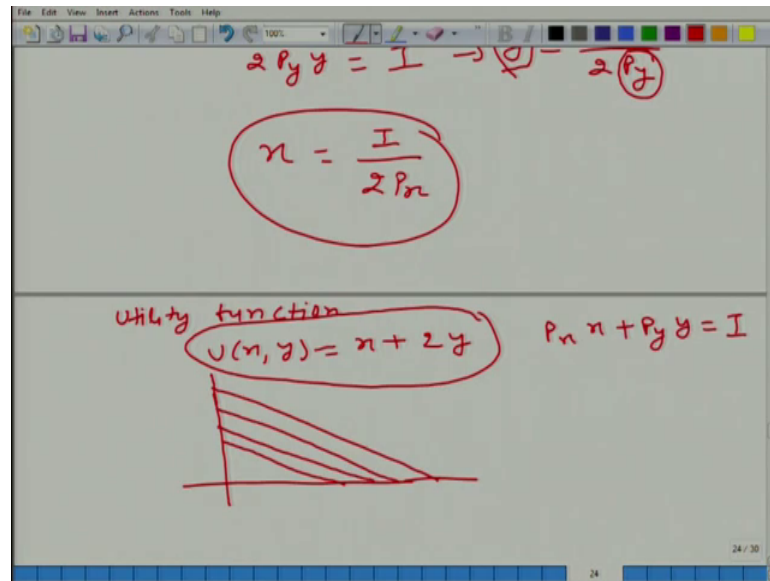 File Edit View Insert Actions Tools Help
100%
B I
2 Py y = I → y = 2 Py
x = I / 2 Px
utility function
U(x, y) = x + 2y
Px x + Py y = I
24 / 30
24